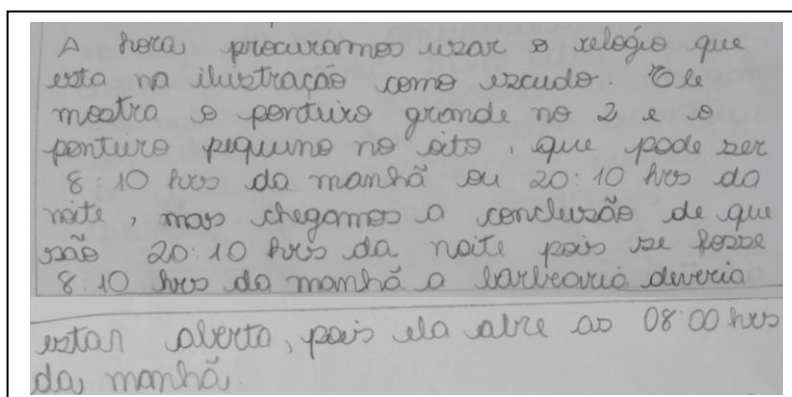 A hora, procuramos usar o relogio que
esta na ilustração como escudo. Ele
mostra o ponteiro grande no 2 e o
ponteiro pequeno no oito, que pode ser
8:10 hrs da manhã ou 20:10 hrs da
noite, mas chegamos a conclusão de que
são 20:10 hrs da noite pois se fosse
8:10 hrs da manhã a barbearia deveria
estar aberta, pois ela abre as 08:00 hrs
da manhã.